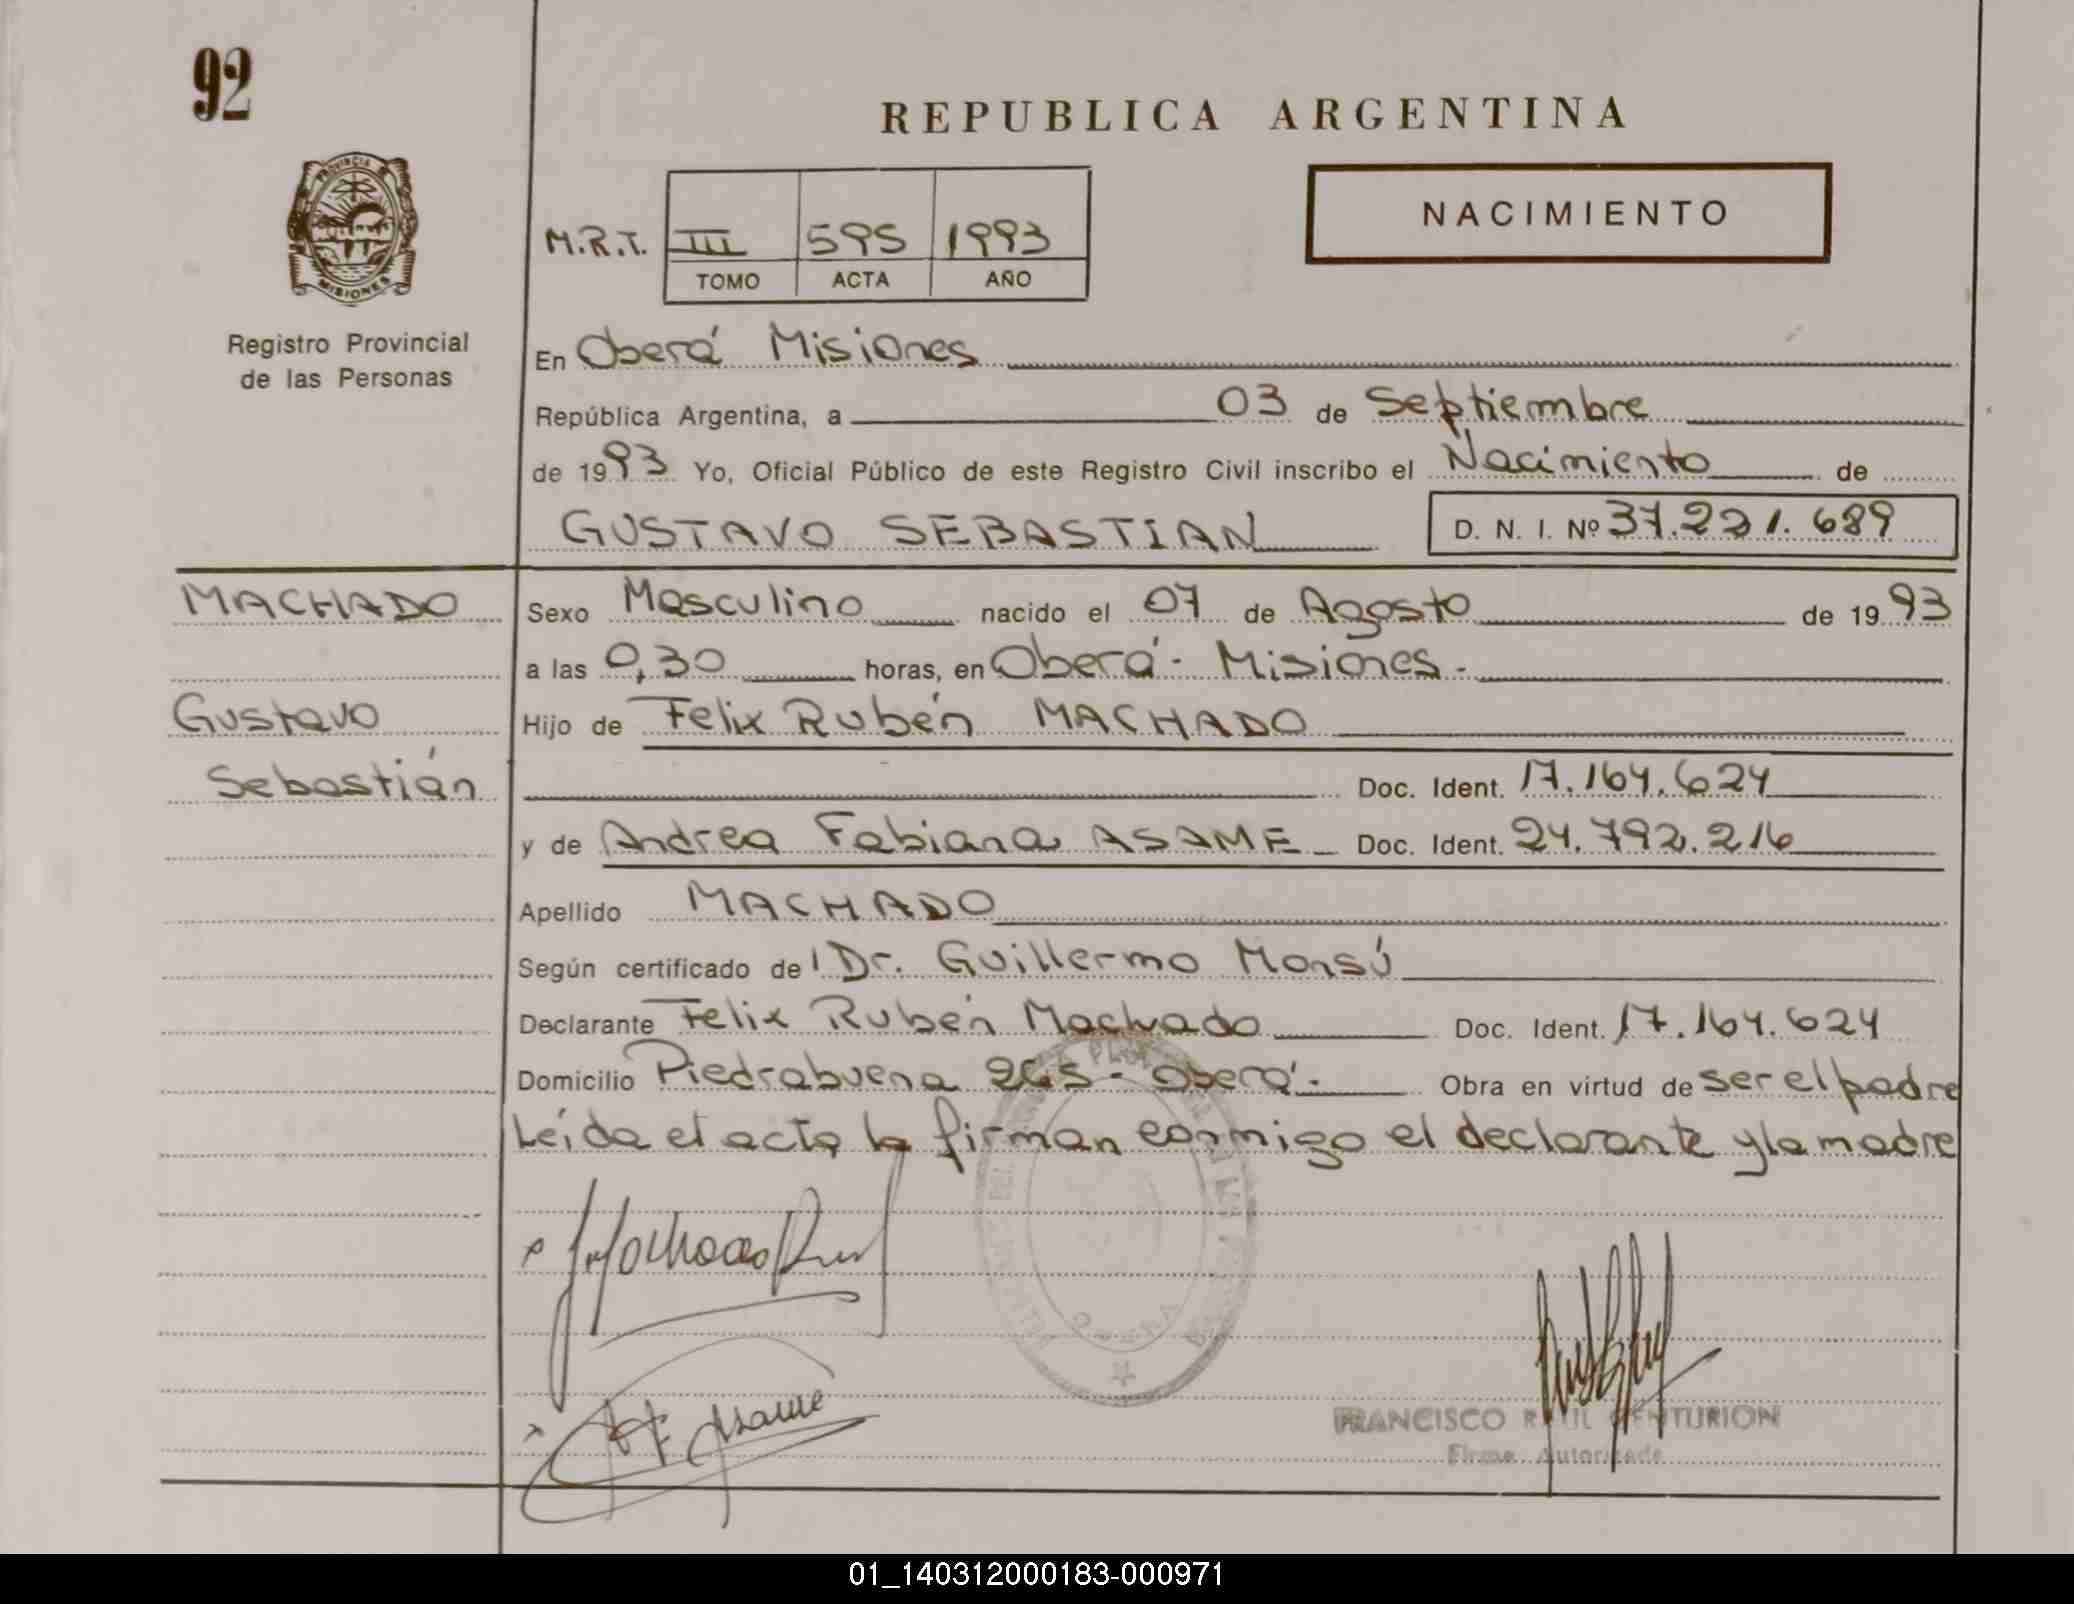 92
REPUBLICA ARGENTINA
PROVINCIA DE
MISIONES
NACIMIENTO
M.R.T. III 595 1993
TOMO ACTA AÑO
Registro Provincial
de las Personas
En Oberá Misiones
República Argentina, a 03 de Septiembre
de 1993 Yo, Oficial Público de este Registro Civil inscribo el Nacimiento de
GUSTAVO SEBASTIAN D. N. I. Nº 37.221.689
MACHADO
Gustavo
Sebastián
Sexo Masculino nacido el 07 de Agosto de 1993
a las 0,30 horas, en Oberá - Misiones -
Hijo de Felix Rubén MACHADO
Doc. Ident. 17.164.624
y de Andrea Fabiana ASAME Doc. Ident. 24.792.216
Apellido MACHADO
Según certificado de Dr. Guillermo Monsú
Declarante Felix Rubén Machado Doc. Ident. 17.164.624
Domicilio Piedrabuena 265 - Oberá - Obra en virtud de ser el padre
Leída el acta la firman conmigo el declarante y la madre
Machado
Asame
FRANCISCO RAUL CENTURION
Firma Autorizada
01_140312000183-000971